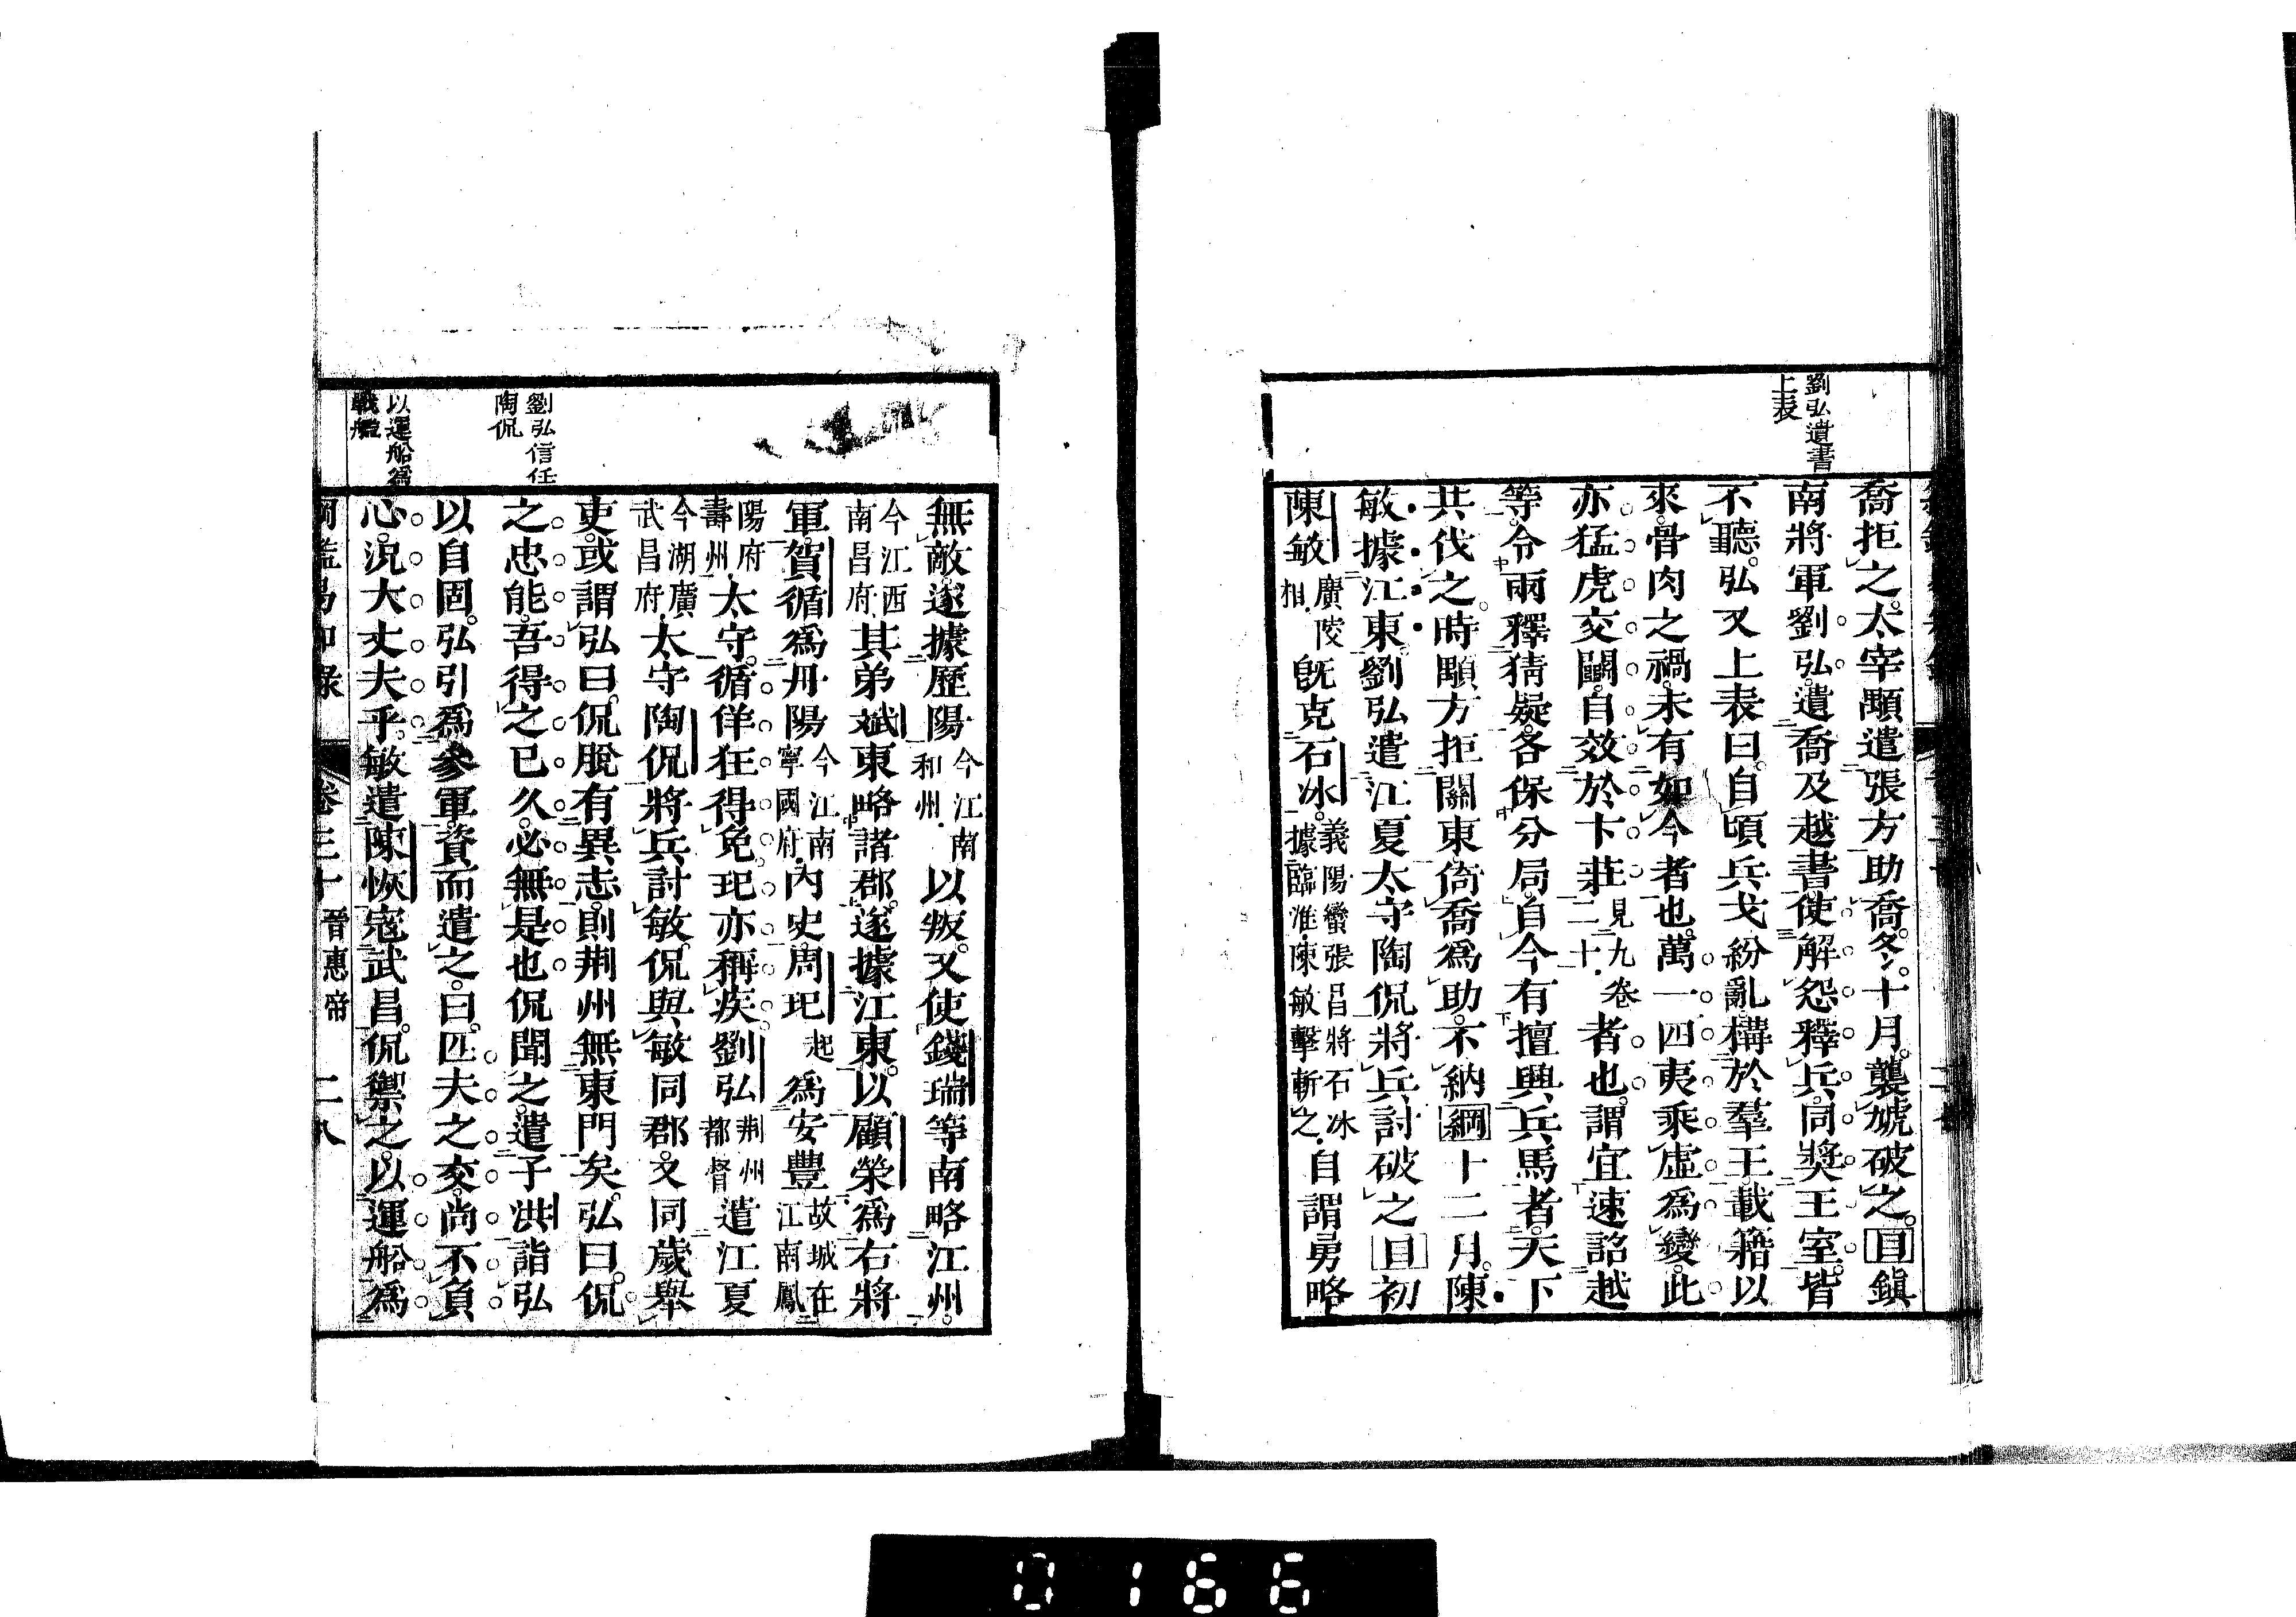 劉弘遺書
上表
喬拒之。太宰顒遣張方助喬。冬。十月。襲虓破之。目鎮
南將軍劉弘。遺喬及越書。使解怨釋兵。同奬王室。皆
不聽。弘又上表曰。自頃兵戈紛亂。構於羣王。載籍以
來。骨肉之禍。未有如今者也。萬一四夷乘虛爲變。此
亦猛虎交鬭。自效於卞莊見九卷二十者也。謂宜速詔越
等。令兩釋猜疑。各保分局。自今有擅興兵馬者。天下
共伐之。時顒方拒關東。倚喬爲助。不納綱十二月。陳
敏據江東劉弘遣江夏太守陶侃將兵討破之目初
陳敏廣陵相既克石冰。義陽蠻張昌將石冰據臨淮陳敏擊斬之自謂勇略
無敵。遂據歷陽今江南和州以叛。又使錢瑞等南略江州。
今江西南昌府其弟斌東略諸郡。遂據江東。以顧榮爲右將
軍。賀循爲丹陽今江南寧國府內史。周玘起爲安豐故城在江南鳳
陽府壽州太守。循佯狂得免。玘亦稱疾。劉弘荆州都督遣江夏
今湖廣武昌府太守陶侃將兵討敏。侃與敏同郡。又同歲舉
吏。或謂弘曰。侃脫有異志。則荆州無東門矣。弘曰。侃
之忠能。吾得之已久。必無是也侃聞之。遣子洪詣弘
以自固。弘引爲參軍。資而遣之。曰。匹夫之交。尚不負
心。況大丈夫乎。敏遣陳恢寇武昌。侃禦之。以運船爲
劉弘信任
陶侃
以運船爲
戰艦
卷三十 晉惠帝 二八
0166